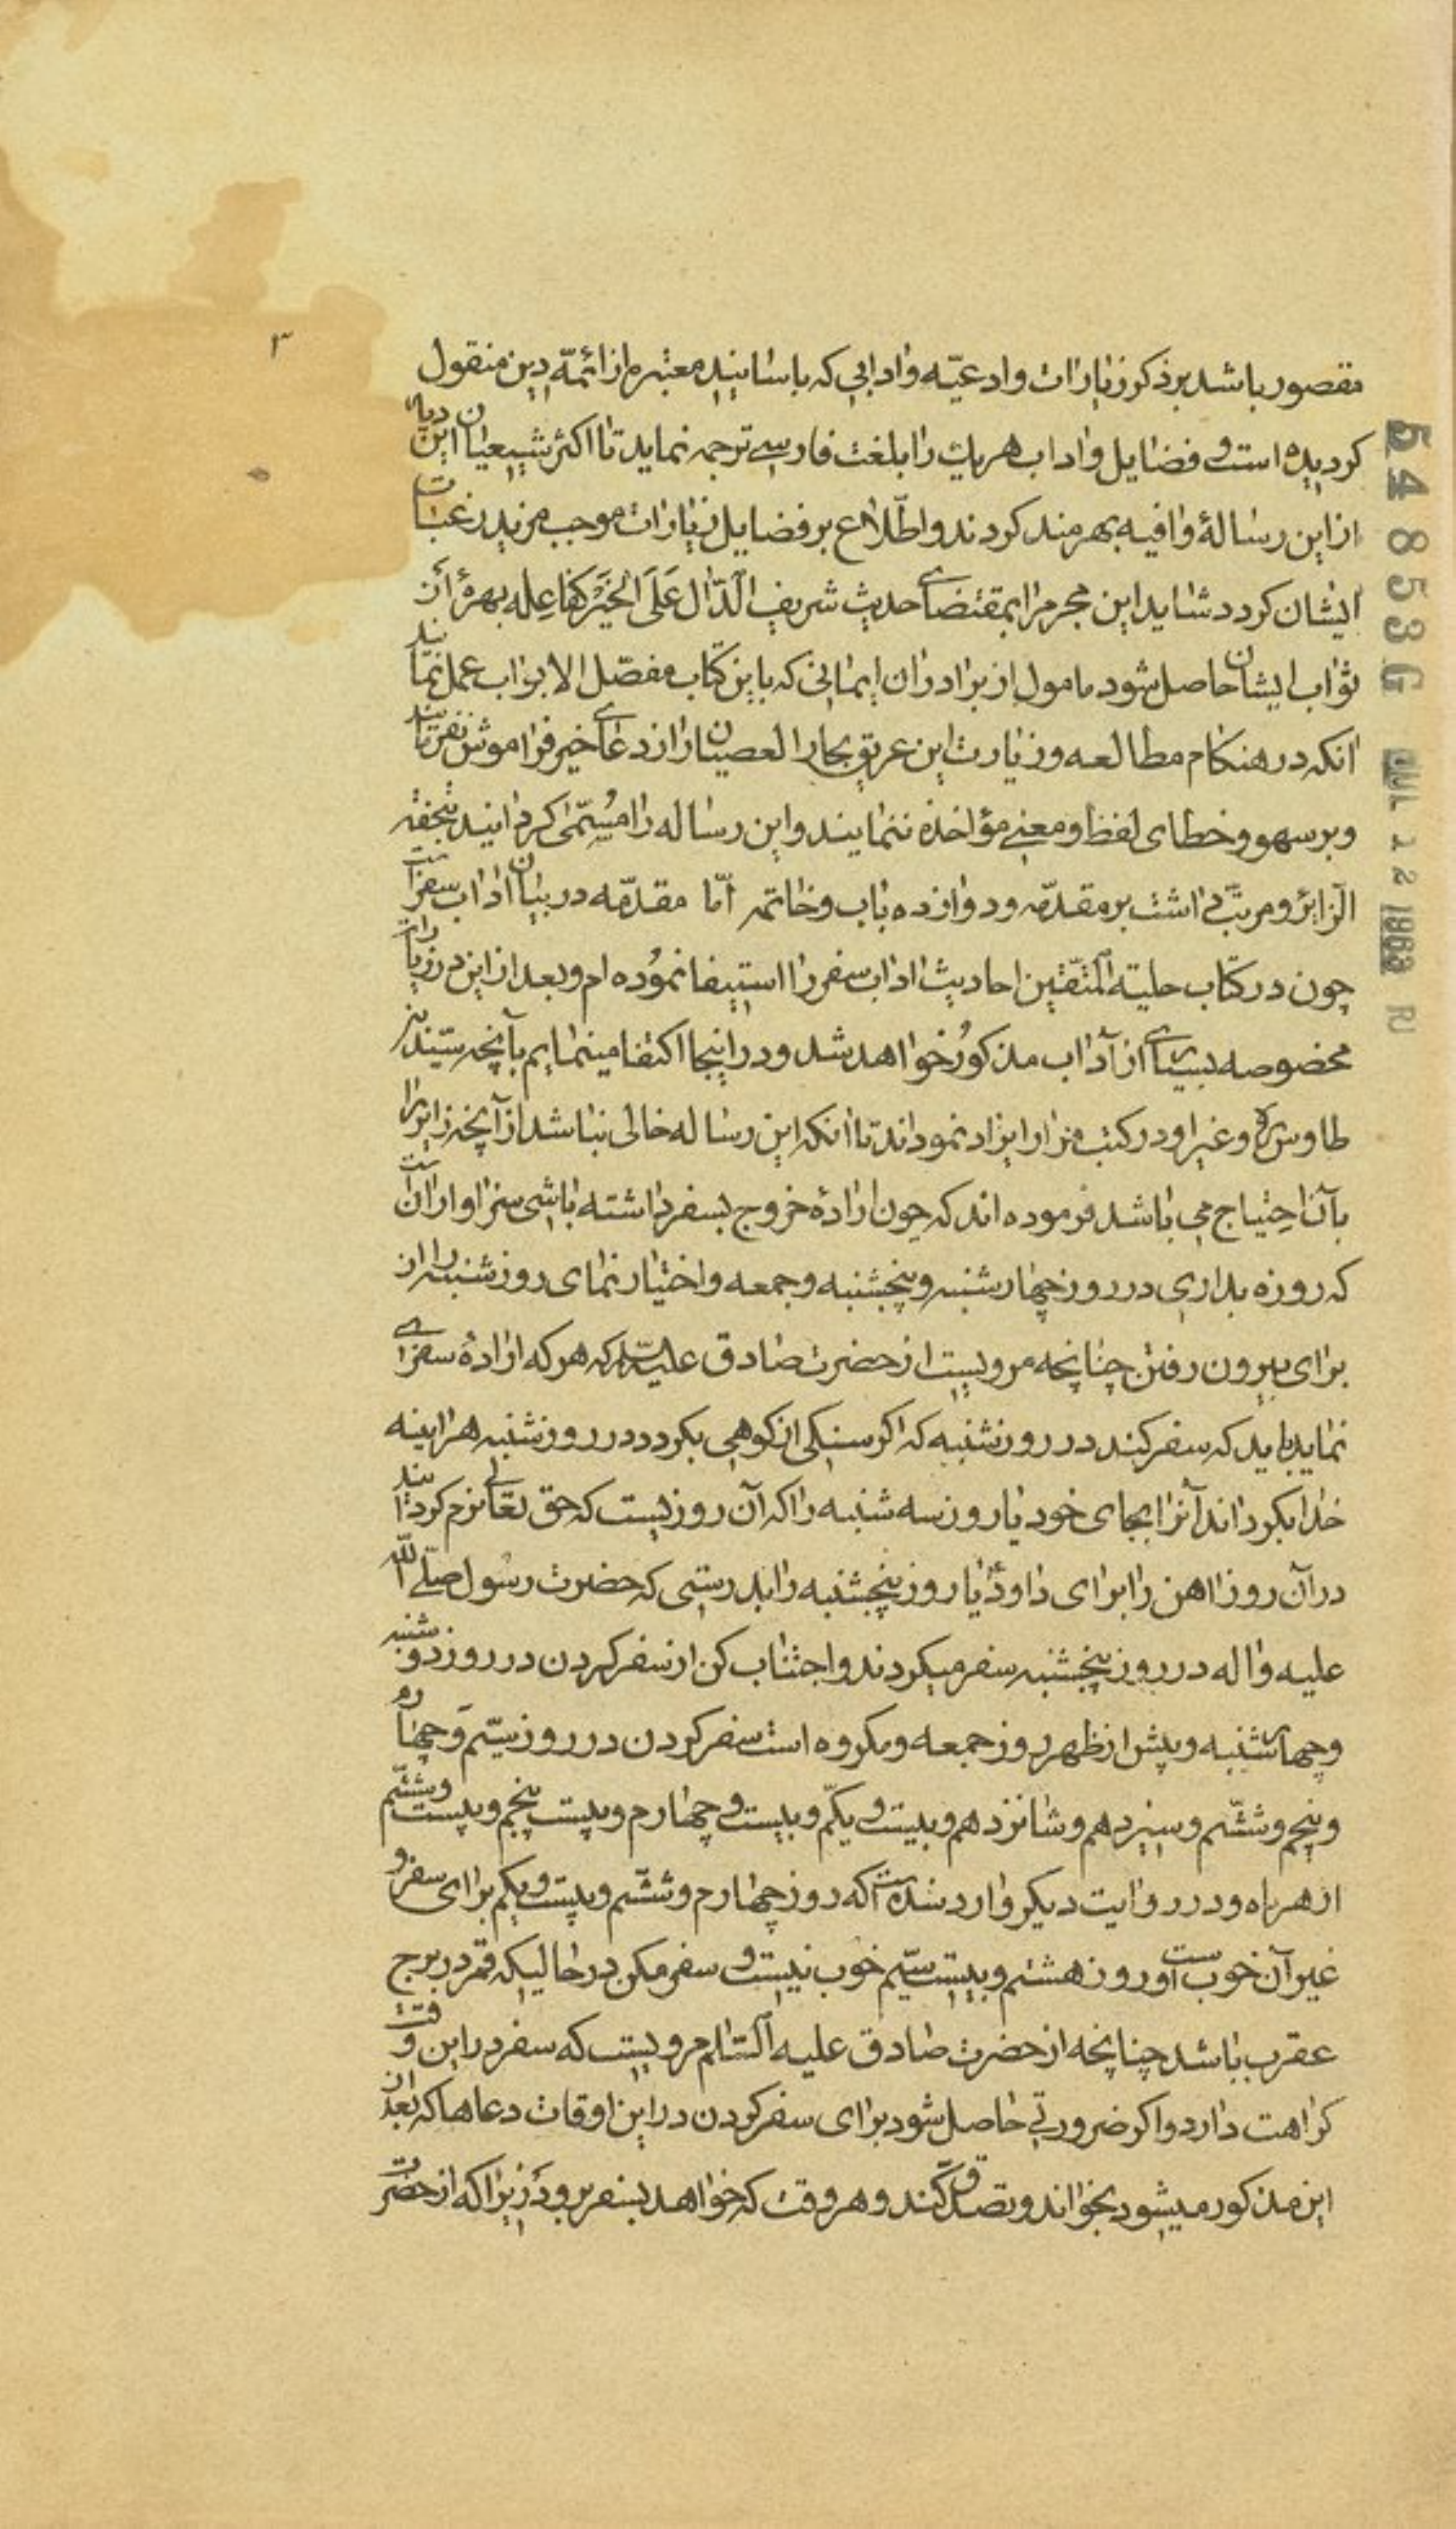 ۳
مقصور باشد بر ذکر زیارات و ادعیّه و ادابی که باسانید معتبره از ائمّه دین منقول
کردیده است و فضایل و اداب هریك را بلغت فارسے ترجمه نماید تا اکثر شیعیان این دیار
از این رسالهٔ وافیه بهرمند کردند و اطّلاع بر فضایل زیارات موجب مزید رغبات
ایشان کردد شاید این مجرم را بمقتضاے حدیث شریف اَلدّال عَلَی الخَیْرِ کَفاعِلِه بهرهٔ از
ثواب ایشان حاصل شود مامول از برادران ایمانی که باین کتاب مفصّل الابواب عمل نمایند
انکه در هنکام مطالعه و زیارت این غریق بحار العصیان را از دعاے خیر فراموش نفرمایند
و بر سهو و خطای لفظ و معنے مؤاخذه ننمایند و این رساله را مُسمّی کردانید بتحفة
الزائر و مرتّب داشت بر مقدّمه و دوازده باب و خاتمه امّا مقدّمه در بیان اداب سفر است
چون در کتاب حلیة المتّقین احادیث اداب سفر را استیفا نموُده ام و بعد از این در زیارات
مخصوصه بسیاے از آداب مذکوُر خواهد شد و در اینجا اکتفا مینمایم بآنچه سیّد بن
طاوس ره و غیر او در کتب مزار ایراد نموداند تا انکه این رساله خالی نباشد از آنچه زایر را
بآن احتیاج می باشد فرموده اند که چون ارادهٔ خروج بسفر داشته باشی سزاوار آن است
که روزه بداری در روز چهارشنبه و پنجشنبه و جمعه و اختیار نمای روز شنبه را از
برای بیرون رفتن چنانچه مرویست از حضرت صادق علیه السلام که هر که ارادهٔ سفرے
نماید باید که سفر کند در روز شنبه که اکر سنکی از کوهی بکردد در روز شنبه هراینه
خدا بکرداند آنرا بجای خود یا روز سه شنبه را که آن روزیست که حق تعالی نرم کردانید
در آن روز اهن را برای داوُد یا روز پنجشنبه را بدرستی که حضرت رسول صلّی الله
علیه و اله در روز پنجشنبه سفر میکردند و اجتناب کن از سفر کردن در روز دوشنبه
و چهارشنبه و پیش از ظهر روز جمعه و مکروه است سفر کردن در روز سیّم و چهارم
و پنجم و ششّم و سیزدهم و شانزدهم و بیست و یکّم و بیست و چهارم و بیست پنجم و بیست و ششّم
از هر ماه و در روایت دیکر وارد شده است که روز چهارم و ششّم و بیست و یکم برای سفر و
غیر آن خوب است و روز هشتم و بیست سیّم خوب نیست و سفر مکن در حالیکه قمر در برج
عقرب باشد چنانچه از حضرت صادق علیه السّلام مرویست که سفر در این وقت
کراهت دارد و اکر ضرورتی حاصل شود برای سفر کردن در این اوقات دعاها که بعد از
این مذکور میشود بخواند و تصدّق کند و هر وقت که خواهد بسفر برود زیرا که از حضرت
54853G JUL 12 1963 RJ